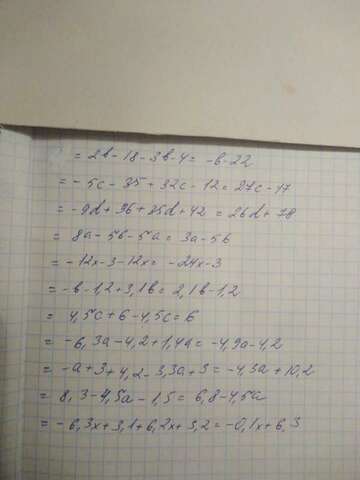 = 2b-18-3b-4= -b-22
=-5c-35+32c-12=27c-17
=-9d+36+35d+42=26d+78
= 8a-5b-5a= 3a-5b
=-12x-3-12x= -24x-3
=-b-1,2+3,1b=2,1b-1,2
= 4,5c+6-4,5c=6
=-6,3a-4,2+1,4a=-4,9a-4,2
=-a+3+4,2-3,3a+3=-4,3a+10,2
= 8,3-4,5a-1,5= 6,8-4,5a
=-6,3x+3,1+6,2x+3,2=-0,1x+6,3